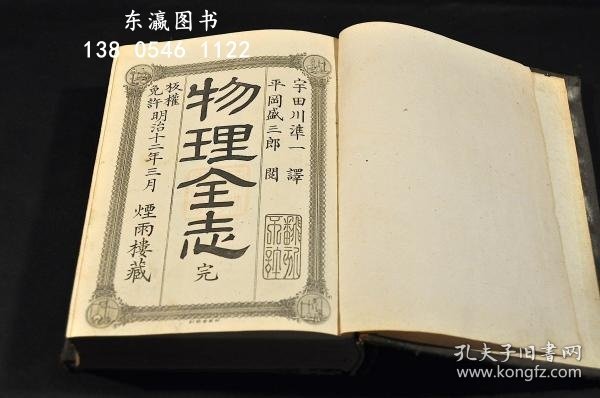 东瀛图书
138 0546 1122
宇田川準一 譯
平岡盛三郎 閲
物理全志 完
板權免許明治十二年三月
煙雨樓藏
孔夫子旧书网
www.kongfz.com